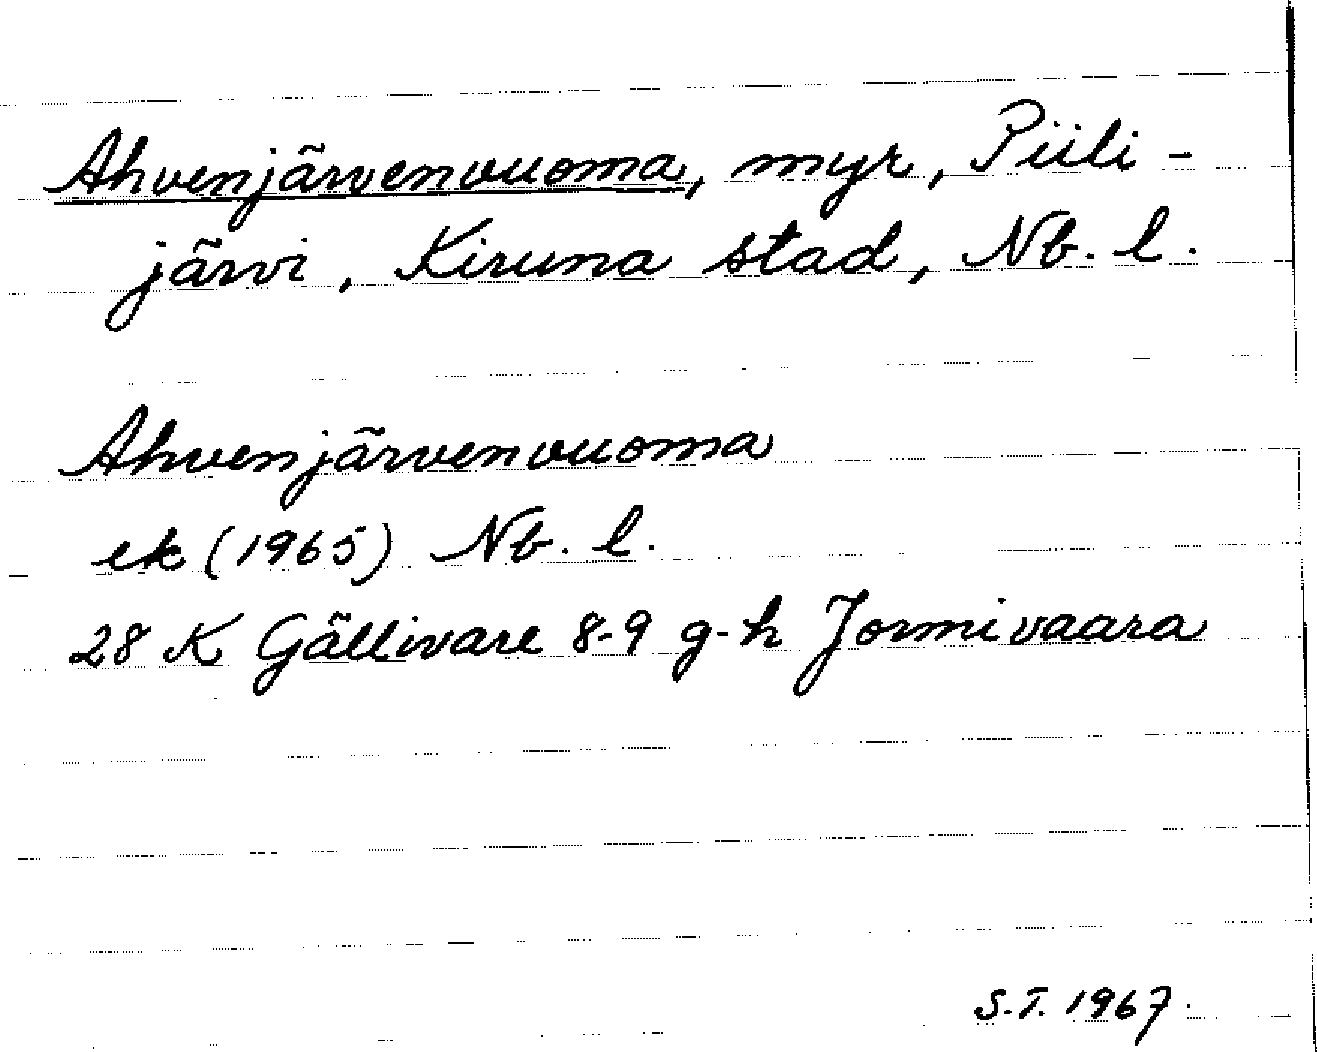 Ahvenjärvenvuoma, myr, Piili-
järvi, Kiruna stad, Nb. l.
Ahvenjärvenvuoma
ek (1965) Nb. l.
28 K Gällivare 8-9 g-h Jormivaara
S.T. 1967.